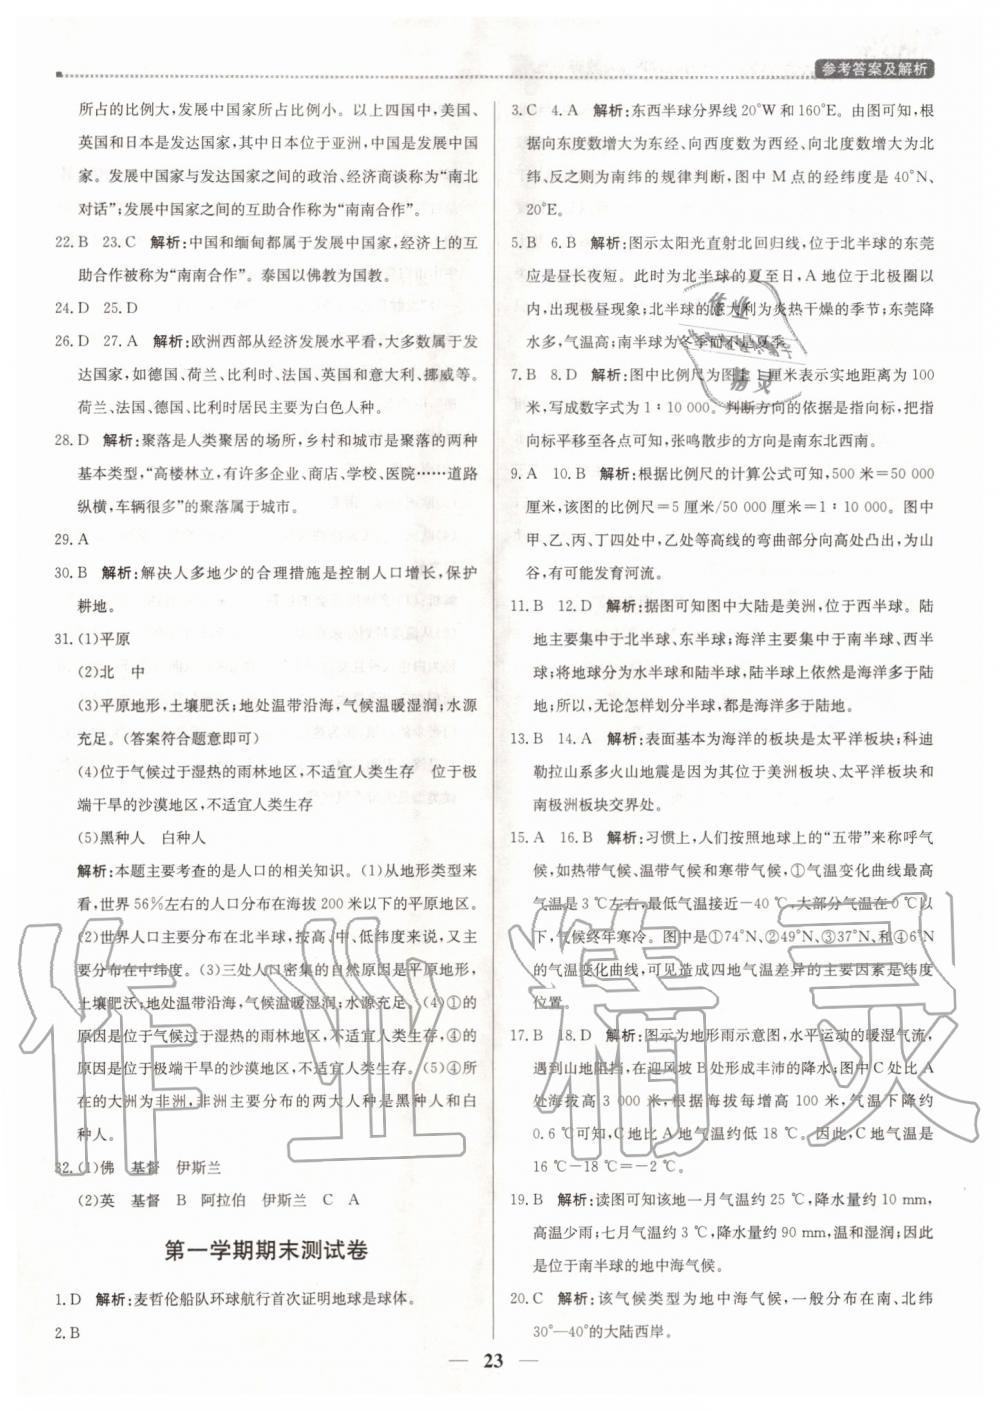 参考答案及解析
所占的比例大,发展中国家所占比例小。以上四国中,美国、
英国和日本是发达国家,其中日本位于亚洲,中国是发展中国
家。发展中国家与发达国家之间的政治、经济商谈称为“南北
对话”;发展中国家之间的互助合作称为“南南合作”。
22. B 23. C 解析:中国和缅甸都属于发展中国家,经济上的互
助合作被称为“南南合作”。泰国以佛教为国教。
24. D 25. D
26. D 27. A 解析:欧洲西部从经济发展水平看,大多数属于
发达国家,如德国、荷兰、比利时、法国、英国和意大利、挪威等。
荷兰、法国、德国、比利时居民主要为白色人种。
28. D 解析:聚落是人类聚居的场所,乡村和城市是聚落的两种
基本类型,“高楼林立,有许多企业、商店、学校、医院……道路
纵横,车辆很多”的聚落属于城市。
29. A
30. B 解析:解决人多地少的合理措施是控制人口增长,保护
耕地。
31. (1)平原
(2)北 中
(3)平原地形,土壤肥沃;地处温带沿海,气候温暖湿润;水源
充足。(答案符合题意即可)
(4)位于气候过于湿热的雨林地区,不适宜人类生存 位于极
端干旱的沙漠地区,不适宜人类生存
(5)黑种人 白种人
解析:本题主要考查的是人口的相关知识。(1)从地形类型来
看,世界 56%左右的人口分布在海拔 200 米以下的平原地区。
(2)世界人口主要分布在北半球,按高、中、低纬度来说,又主
要分布在中纬度。(3)三处人口密集的自然原因是平原地形,
土壤肥沃,地处温带沿海,气候温暖湿润;水源充足。(4)①的
原因是位于气候过于湿热的雨林地区,不适宜人类生存,④的
原因是位于极端干旱的沙漠地区,不适宜人类生存。(5)④所
在的大洲为非洲,非洲主要分布的两大人种是黑种人和白
种人。
32. (1)佛 基督 伊斯兰
(2)英 基督 B 阿拉伯 伊斯兰 C A
第一学期期末测试卷
1. D 解析:麦哲伦船队环球航行首次证明地球是球体。
2. B
3. C 4. A 解析:东西半球分界线 20°W 和 160°E。由图可知,根
据向东度数增大为东经、向西度数增大为西经、向北度数增大为北
纬、反之则为南纬的规律判断,图中 M 点的经纬度是 40°N、
20°E。
5. B 6. B 解析:图示太阳光直射北回归线,位于北半球的东莞
应是昼长夜短。此时为北半球的夏至日,A 地位于北极圈以
内,出现极昼现象;北半球的意大利为炎热干燥的季节;东莞降
水多,气温高;南半球为冬季而不是夏季。
7. B 8. D 解析:图中比例尺为图上 1 厘米表示实地距离为 100
米,写成数字式为 1∶10 000。判断方向的依据是指向标,把指
向标平移至各点可知,张鸣散步的方向是南东北西南。
9. A 10. B 解析:根据比例尺的计算公式可知,500 米=50 000
厘米,该图的比例尺=5 厘米/50 000 厘米=1∶10 000。图中
甲、乙、丙、丁四处中,乙处等高线的弯曲部分向高处凸出,为山
谷,有可能发育河流。
11. B 12. D 解析:据图可知图中大陆是美洲,位于西半球。陆
地主要集中于北半球、东半球;海洋主要集中于南半球、西半
球;将地球分为水半球和陆半球,陆半球上依然是海洋多于陆
地;所以,无论怎样划分半球,都是海洋多于陆地。
13. B 14. A 解析:表面基本为海洋的板块是太平洋板块;科迪
勒拉山系多火山地震是因为其位于美洲板块、太平洋板块和
南极洲板块交界处。
15. A 16. B 解析:习惯上,人们按照地球上的“五带”来称呼气
候,如热带气候、温带气候和寒带气候等。①气温变化曲线最高
气温是 3 ℃左右,最低气温接近-40 ℃,大部分气温在 0 ℃以
下,气候终年寒冷。图中是①74°N、②49°N、③37°N、和④6°N
的气温变化曲线,可见造成四地气温差异的主要因素是纬度
位置。
17. B 18. D 解析:图示为地形雨示意图,水平运动的暖湿气流,
遇到山地阻挡,在迎风坡 B 处形成丰沛的降水;图中 C 处比 A
处海拔高 3 000 米,根据海拔每增高 100 米,气温下降约
0.6 ℃可知,C 地比 A 地气温约低 18 ℃。因此,C 处气温是
16 ℃-18 ℃=-2 ℃。
19. B 解析:读图可知该地一月气温约 25 ℃,降水量约 10 mm,
高温少雨;七月气温约 3 ℃,降水量约 90 mm,温和湿润;因此
是位于南半球的地中海气候。
20. C 解析:该气候类型为地中海气候,一般分布在南、北纬
30°—40°的大陆西岸。
23
作业精灵
作业
精灵